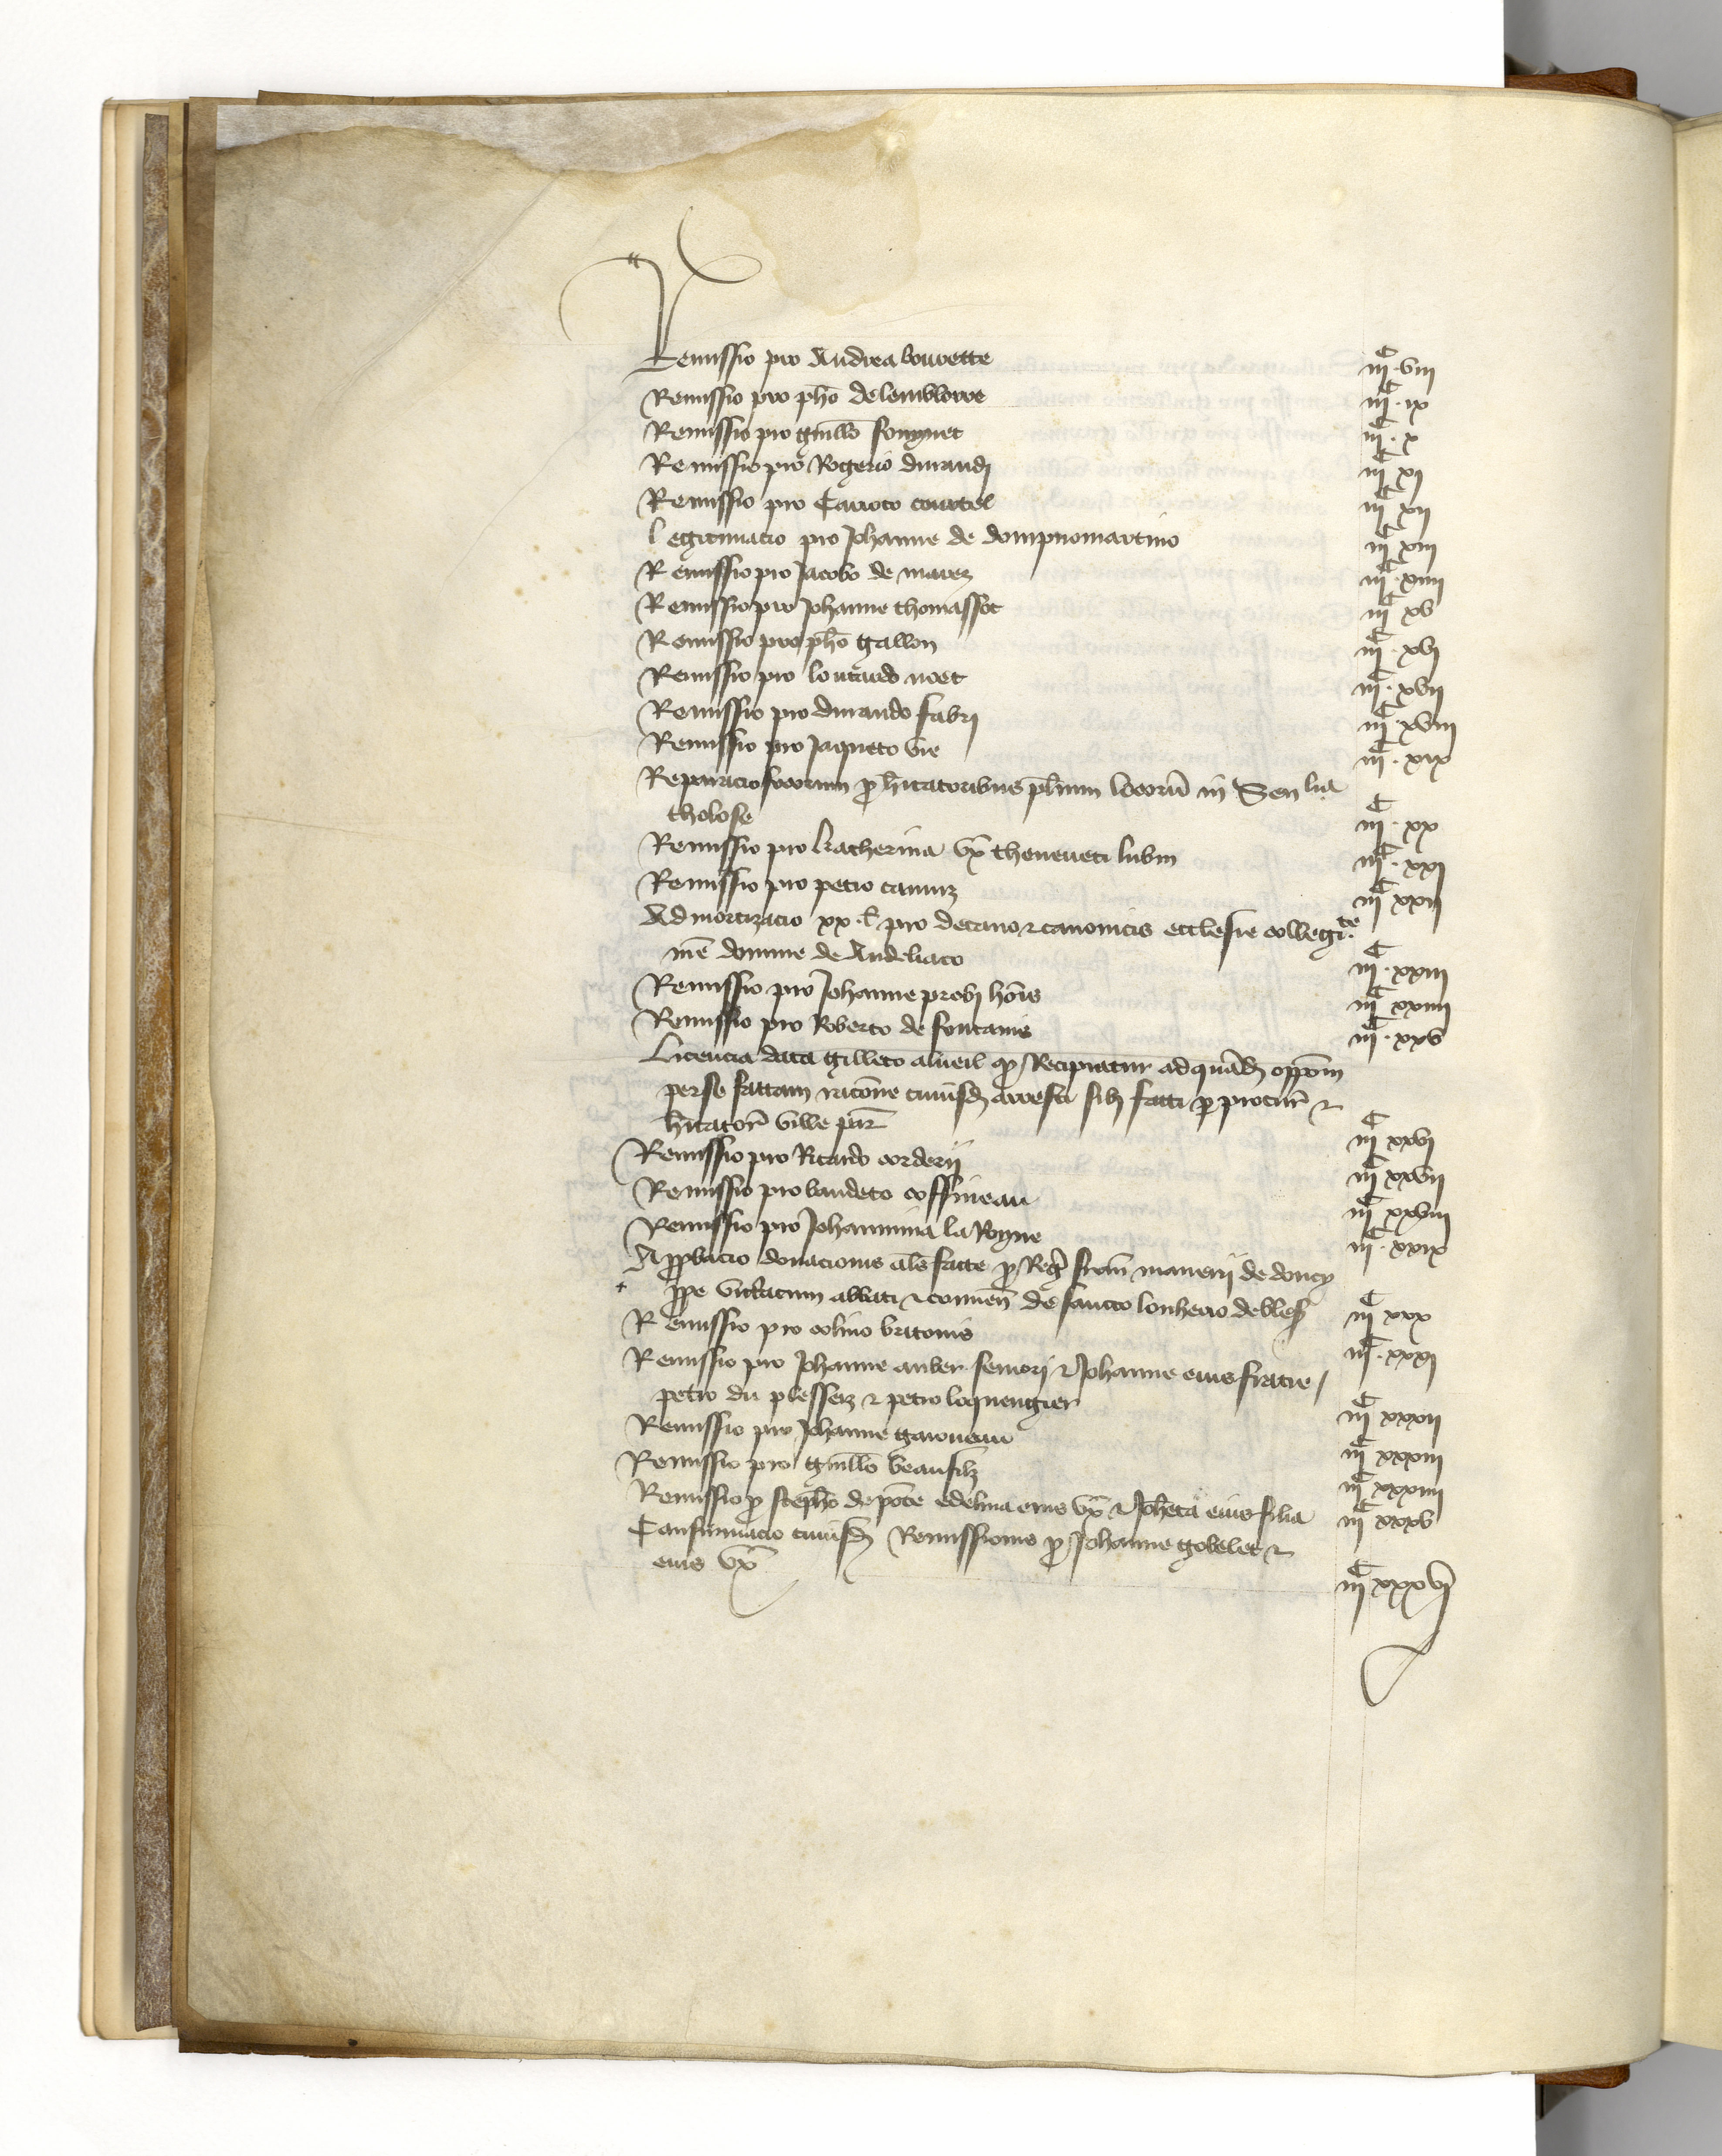 Remissio pro Andrea bourette iii C viii
Remissio pro pho de lembloroe iii C ix
Remissio pro guillo fouquet iii C x
Remissio pro Rogerio durandi iii C xi
Remissio pro Carroto courtel iii C xii
Legitimacio pro Johanne de dompnomartino iii C xiii
Remissio pro Jacobo de marez iii C xiiii
Remissio pro Johanne thomassot iii C xv
Remissio pro pho gallon iii C xvi
Remissio pro noet iii C xvii
Remissio pro durando fabri iii C xviii
Remissio pro Jaqueto vie iii C xix
Reparacio focorum pro hitatoribus plium locoru in Senlia
tholose iii C xx
Remissio pro katherina ux theneneti lubin iii C xxi
Remissio pro petro camuz iii C xxii
Admortizacio xx l pro decano et canonicis ecclesie collegiate
me domine de Andeliaco iii C xxiii
Remissio pro Johanne probi hois iii C xxiiii
Remissio pro Roberto de fontanis iii C xxv
Licencia data gilleto alueil quod Recipiatur ad quad oppoem
per se factam racone cuiusd arresti sibi facti per procur et
hitator ville par iii C xxvi
Remissio pro Ricardo corderii iii C xxvii
Remissio pro baudeto coffineau iii C xxviii
Remissio pro Johannina la Royne iii C xxix
Approbacio donacionis als facte per Reg manerii de doucy
prope abbati et conuen de sancto lonherio de blesis iii C xxx
Remissio pro colino britonis iii C xxxi
Remissio pro Johanne auber seniori et Johanne eius fratre /
petro du plesseiz et petro loquengier iii C xxxii
Remissio pro Johanne garoneau iii C xxxiii
Remissio pro guillo beaufilz iii C xxxiiii
Remissio pro stepho de ponte edelina eius ux et Joheta eius filia iii C xxxv
Confirmacio cuiusd Remissionis pro Johanne gobelet et
eius ux iii C xxxvi